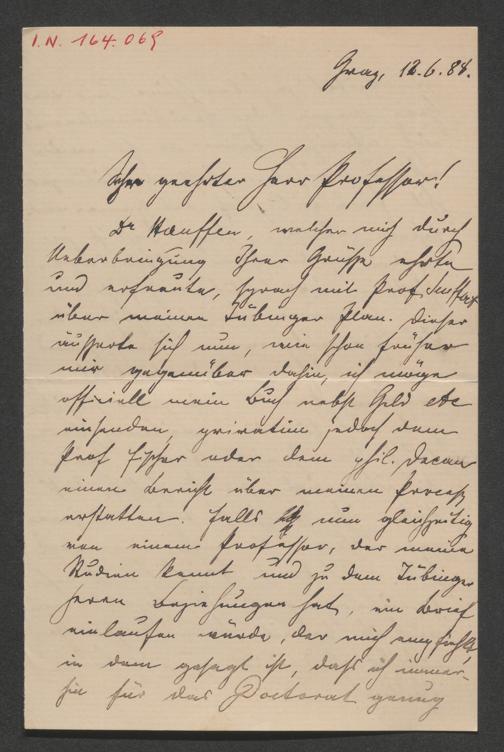 I.N. 164.069
Graz, 12.6.88.
Sehr geehrter Herr Professor!
Dr Hauffen, welcher mich durch
Ueberbringung Ihrer Grüsse ehrte
und erfreute, sprach mit Prof.
über meinen Tübinger Plan. Dieser
äusserte sich nun, wie schon früher
mir gegenüber dahin, ich möge
officiell mein Buch nebst Geld etc
einsenden, privatim jedoch dem
Prof Fischer oder dem phil. Decan
einen Bericht über meinen Process
erstatten. Falls nun gleichzeitig
von einem Professor, der meine
Studien kennt und zu dem Tübinger
Herrn Beziehungen hat, ein Brief
einlaufen würde, der mich empfiehlt,
in dem gesagt ist, dass ich immer-
hin für das Doctorat genug